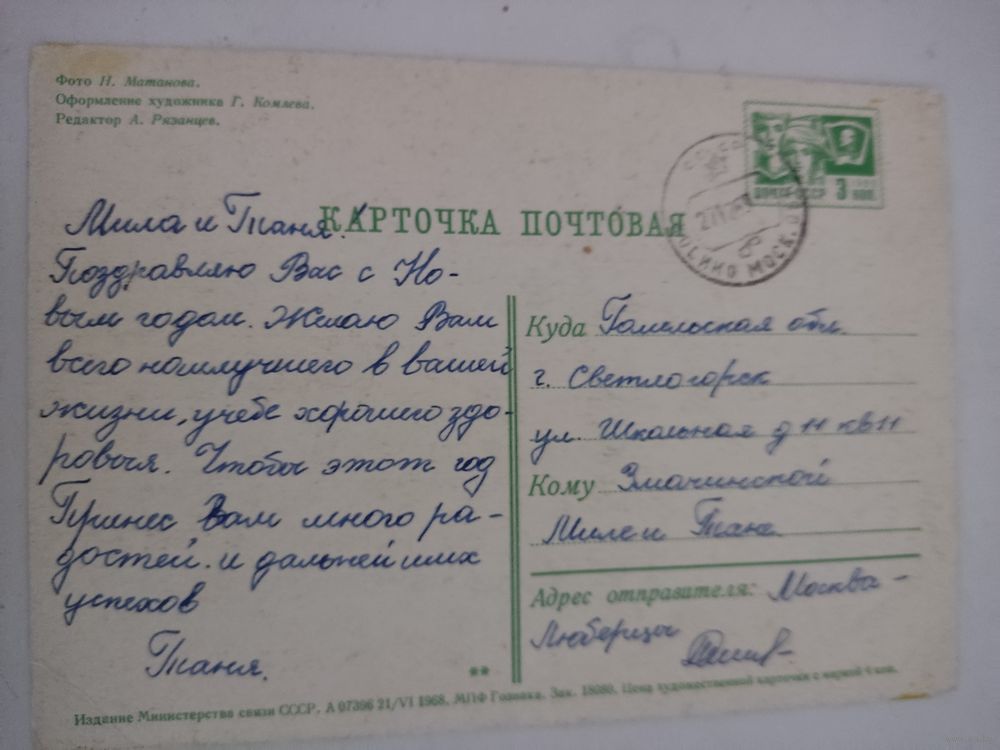 Фото Н. Матанова.
Оформление художника Г. Комлева.
Редактор А. Рязанцев.
ПОЧТА СССР 3 КОП.
МОСК.
КАРТОЧКА ПОЧТОВАЯ
Мила и Таня.
Поздравляю Вас с Но-
вым годом. Желаю Вам
всего наилучшего в вашей
жизни, учебе хорошего здо-
ровья. Чтобы этот год
Принес Вам много ра-
достей. и дальнейших
успехов
Таня.
Куда Гомельская обл.
г. Светлогорск
ул. Школьная д 11 кв 11
Кому Змачинской
Миле и Тане
Адрес отправителя: Москва -
Люберцы
**
Издание Министерства связи СССР. А 07396 21/VI 1968. МПФ Гознака. Зак. 18080. Цена художественной карточки с маркой 4 коп.